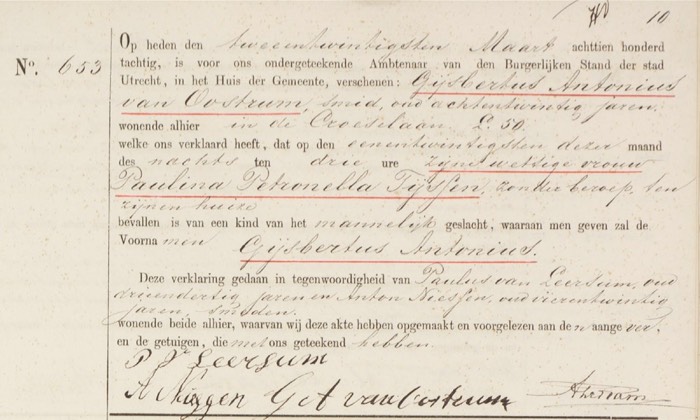 10
Op heden den tweeentwintigsten Maart achttien honderd
N°. 653 tachtig, is voor ons ondergeteekende Ambtenaar van den Burgerlijken Stand der stad
Utrecht, in het Huis der Gemeente, verschenen: Gijsbertus Antonius
van Oostrum, smid, oud achtentwintig jaren,
wonende alhier in de Croeselaan L. 50.
welke ons verklaard heeft, dat op den eenentwintigsten dezer maand
des nachts ten drie ure zijne wettige vrouw
Paulina Petronella Tijssen, zonder beroep, ten
zijnen huize
bevallen is van een kind van het mannelijk geslacht, waaraan men geven zal de
Voorna men Gijsbertus Antonius.
Deze verklaring gedaan in tegenwoordigheid van Paulus van Leersum, oud
drieendertig jaren en Anton Niessen, oud vierentwintig
jaren, smeden.
wonende beide alhier, waarvan wij deze akte hebben opgemaakt en voorgelezen aan de n aange ver-
en de getuigen, die met ons geteekend hebben.
P v Leersum
G A van Oostrum